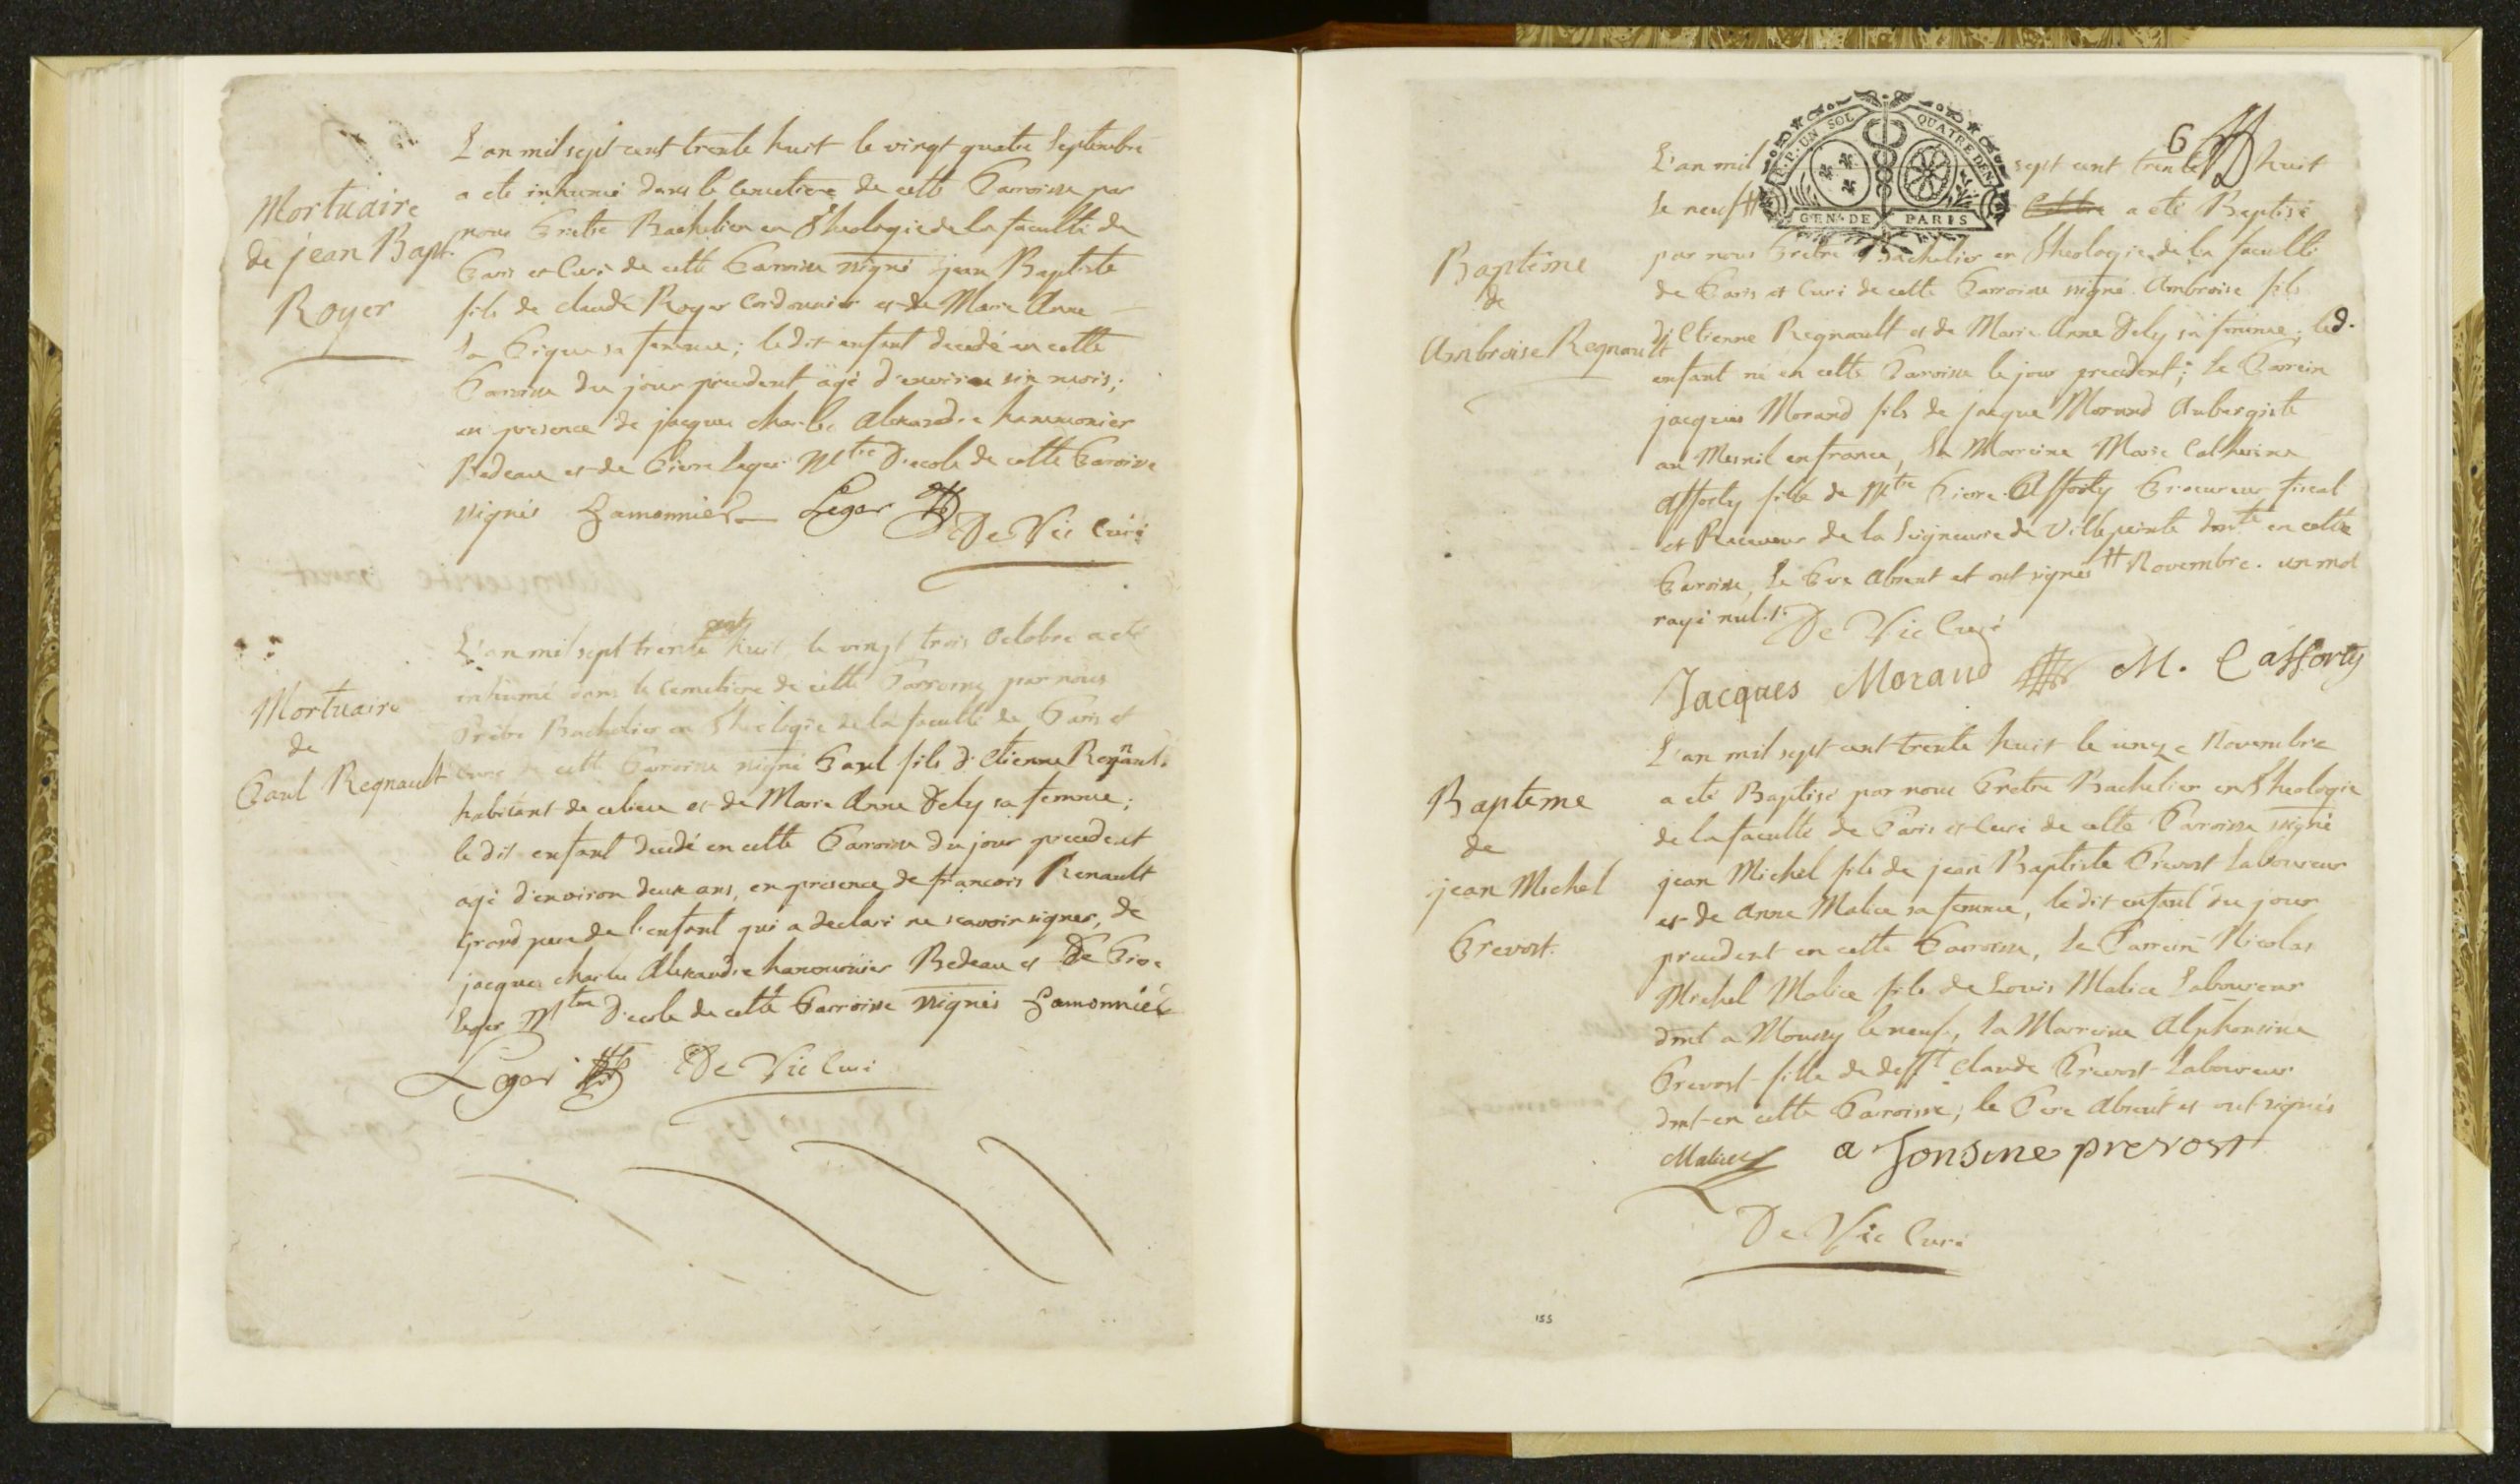 Mortuaire
de jean Bapt.
Royer
L'an mil sept cent trente huit le vingt quatre Septembre
a eté inhumé dans le Cemetiere de cette Parroisse par
nous Pretre Bachelier en Theologie de la faculté de
Paris et Curé de cette Parroisse signé jean Baptiste
fils de claude Royer Cordonnier et de Marie Anne
sa femme; ledit enfant decedé en cette
Paroisse du jour precedent agé d'environ six mois;
en presence de jacques charles Alexandre hammonier
Bedeau et de Pierre Leger Mtre D'ecole de cette Paroisse
signés hamonnier Leger De Vic Curé
Mortuaire
de
Paul Regnault
L'an mil sept cent trente huit le vingt trois Octobre a eté
inhumé dans le Cemetiere de cette Parroisse par nous
Pretre Bachelier en Theologie de la faculté de Paris et
Curé de cette Parroisse signé Paul fils d'Etienne Regnault
habitant de ce lieu et de Marie Anne Dely sa femme;
le dit enfant decedé en cette Paroisse du jour precedent
agé d'environ deux ans, en presence de francois Renault
Grand pere de l'enfant qui a declaré ne scavoir signer, de
jacques charles Alexandre hamonnier Bedeau et De Piere
Leger Mtre D'ecole de cette Parroisse signés hamonnier
Leger De Vic Curé
F.P. UN SOL QUATRE DEN.
GEN. DE PARIS
6
Bapteme
de
Ambroise Regnault
L'an mil sept cent trente huit
le neuf # a eté Baptisé
par nous Pretre Bachelier en Theologie de la faculté
de Paris et Curé de cette Parroisse signé Ambroise fils
d'Etienne Regnault et de Marie Anne Dely sa femme; led.
enfant né en cette Paroisse le jour precedent; le Parein
jacques Morand fils de jacque Morand Aubergiste
au Mesnil en france, la Mareine Marie Catherine
Afforty fille de Mtre Pierre Afforty Procureur fiscal
et Receveur de la Seigneurie de Villepeinte dmte en cette
Paroisse, le Pere Absent et ont signés # Novembre. un mot
rayé nul./. De Vic Curé
Jacques Moraud M. C afforty
Bapteme
de
jean Michel
Prevost.
L'an mil sept cent trente huit le unze Novembre
a eté Baptisé par nous Pretre Bachelier en Theologie
de la faculté de Paris et Curé de cette Paroisse signé
jean Michel fils de jean Baptiste Prevost Laboureur
et de Anne Malice sa femme, le dit enfant du jour
precedent en cette Parroisse, le Parrein Nicolas
Michel Malice fils de Louis Malice Laboureur
dmt a Moussy le neuf, la Marreine Alphonsine
Prevost fille de defft claude Prevost Laboureur
dmt en cette Parroisse; le Pere Absent et ont signés
Malice a fonsine prevost
De Vic Curé
155